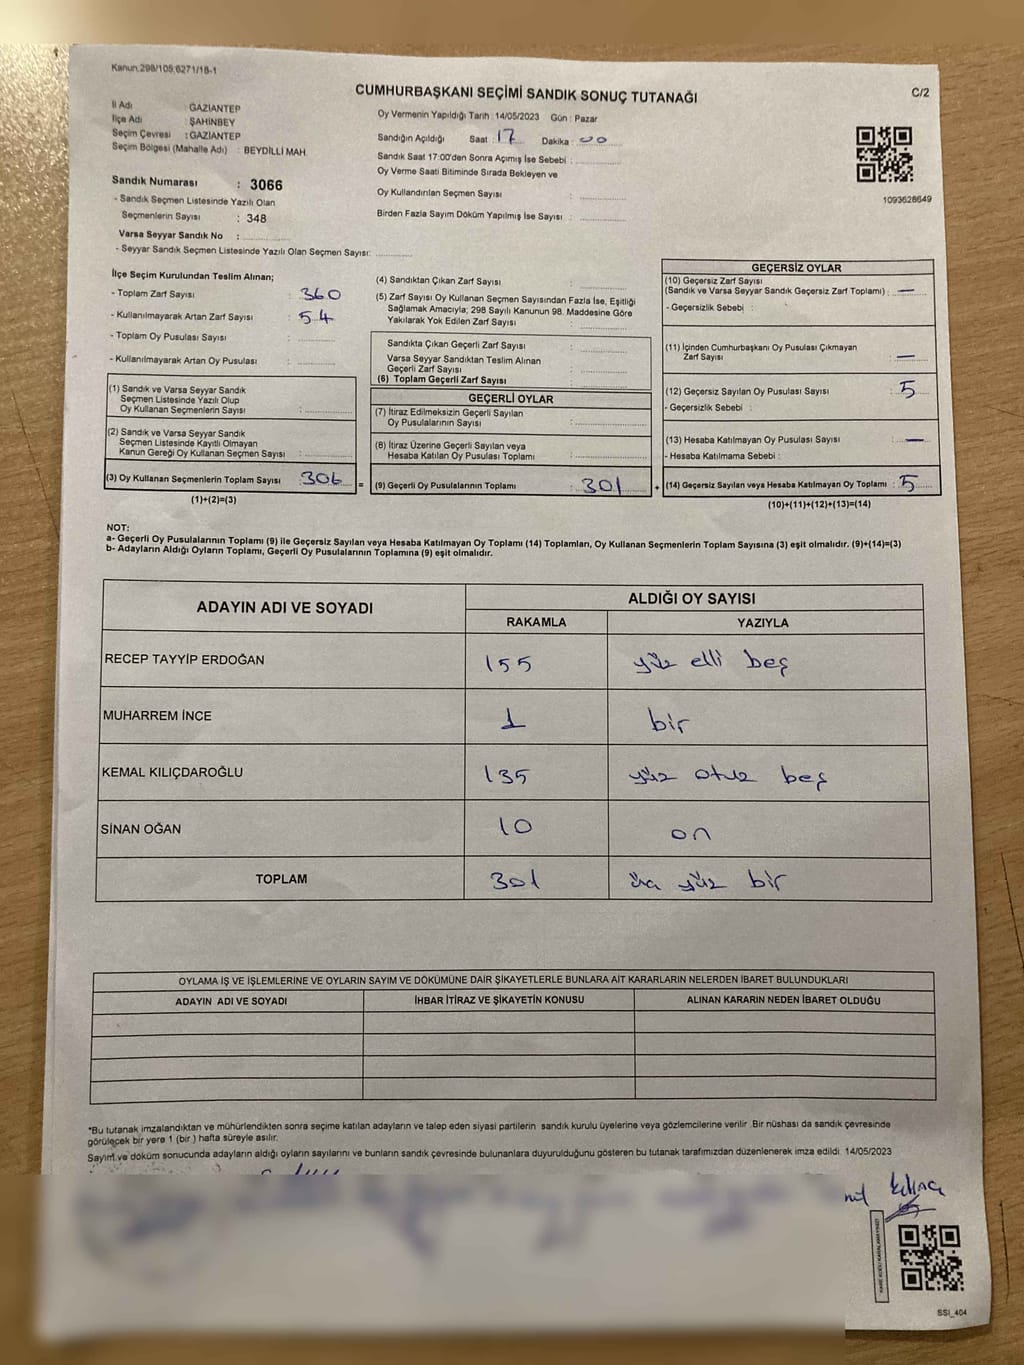 Kanun:298/105;6271/18-1
CUMHURBAŞKANI SEÇİMİ SANDIK SONUÇ TUTANAĞI
C/2
İl Adı : GAZİANTEP
İlçe Adı : ŞAHİNBEY
Seçim Çevresi : GAZİANTEP
Seçim Bölgesi (Mahalle Adı) : BEYDİLLİ MAH.
Oy Vermenin Yapıldığı Tarih : 14/05/2023 Gün : Pazar
Sandığın Açıldığı Saat : 17 Dakika : 00
Sandık Saat 17:00'den Sonra Açımış İse Sebebi :
Oy Verme Saati Bitiminde Sırada Bekleyen ve
Oy Kullandırılan Seçmen Sayısı :
Birden Fazla Sayım Döküm Yapılmış İse Sayısı :
1093628649
Sandık Numarası : 3066
- Sandık Seçmen Listesinde Yazılı Olan
Seçmenlerin Sayısı : 348
Varsa Seyyar Sandık No :
- Seyyar Sandık Seçmen Listesinde Yazılı Olan Seçmen Sayısı:
İlçe Seçim Kurulundan Teslim Alınan;
- Toplam Zarf Sayısı : 360
- Kullanılmayarak Artan Zarf Sayısı : 54
- Toplam Oy Pusulası Sayısı :
- Kullanılmayarak Artan Oy Pusulası :
(1) Sandık ve Varsa Seyyar Sandık
Seçmen Listesinde Yazılı Olup
Oy Kullanan Seçmenlerin Sayısı :
(2) Sandık ve Varsa Seyyar Sandık
Seçmen Listesinde Kayıtlı Olmayan
Kanun Gereği Oy Kullanan Seçmen Sayısı :
(3) Oy Kullanan Seçmenlerin Toplam Sayısı : 306 =
(1)+(2)=(3)
(4) Sandıktan Çıkan Zarf Sayısı :
(5) Zarf Sayısı Oy Kullanan Seçmen Sayısından Fazla İse, Eşitliği
Sağlamak Amacıyla; 298 Sayılı Kanunun 98. Maddesine Göre
Yakılarak Yok Edilen Zarf Sayısı :
Sandıkta Çıkan Geçerli Zarf Sayısı :
Varsa Seyyar Sandıktan Teslim Alınan
Geçerli Zarf Sayısı :
(6) Toplam Geçerli Zarf Sayısı :
GEÇERLİ OYLAR
(7) İtiraz Edilmeksizin Geçerli Sayılan
Oy Pusulalarının Sayısı :
(8) İtiraz Üzerine Geçerli Sayılan veya
Hesaba Katılan Oy Pusulası Toplamı :
(9) Geçerli Oy Pusulalarının Toplamı : 301 +
GEÇERSİZ OYLAR
(10) Geçersiz Zarf Sayısı
(Sandık ve Varsa Seyyar Sandık Geçersiz Zarf Toplamı) : —
- Geçersizlik Sebebi :
(11) İçinden Cumhurbaşkanı Oy Pusulası Çıkmayan
Zarf Sayısı : —
(12) Geçersiz Sayılan Oy Pusulası Sayısı : 5
- Geçersizlik Sebebi :
(13) Hesaba Katılmayan Oy Pusulası Sayısı : —
- Hesaba Katılmama Sebebi :
(14) Geçersiz Sayılan veya Hesaba Katılmayan Oy Toplamı : 5
(10)+(11)+(12)+(13)=(14)
NOT:
a- Geçerli Oy Pusulalarının Toplamı (9) ile Geçersiz Sayılan veya Hesaba Katılmayan Oy Toplamı (14) Toplamları, Oy Kullanan Seçmenlerin Toplam Sayısına (3) eşit olmalıdır. (9)+(14)=(3)
b- Adayların Aldığı Oyların Toplamı, Geçerli Oy Pusulalarının Toplamına (9) eşit olmalıdır.
ADAYIN ADI VE SOYADI ALDIĞI OY SAYISI
RAKAMLA YAZIYLA
RECEP TAYYİP ERDOĞAN 155 yüz elli beş
MUHARREM İNCE 1 bir
KEMAL KILIÇDAROĞLU 135 yüz otuz beş
SİNAN OĞAN 10 on
TOPLAM 301 üç yüz bir
OYLAMA İŞ VE İŞLEMLERİNE VE OYLARIN SAYIM VE DÖKÜMÜNE DAİR ŞİKAYETLERLE BUNLARA AİT KARARLARIN NELERDEN İBARET BULUNDUKLARI
ADAYIN ADI VE SOYADI İHBAR İTİRAZ VE ŞİKAYETİN KONUSU ALINAN KARARIN NEDEN İBARET OLDUĞU
*Bu tutanak imzalandıktan ve mühürlendikten sonra seçime katılan adayların ve talep eden siyasi partilerin sandık kurulu üyelerine veya gözlemcilerine verilir .Bir nüshası da sandık çevresinde
görülecek bir yere 1 (bir ) hafta süreyle asılır.
Sayım ve döküm sonucunda adayların aldığı oyların sayılarını ve bunların sandık çevresinde bulunanlara duyurulduğunu gösteren bu tutanak tarafımızdan düzenlenerek imza edildi 14/05/2023
SSI_404